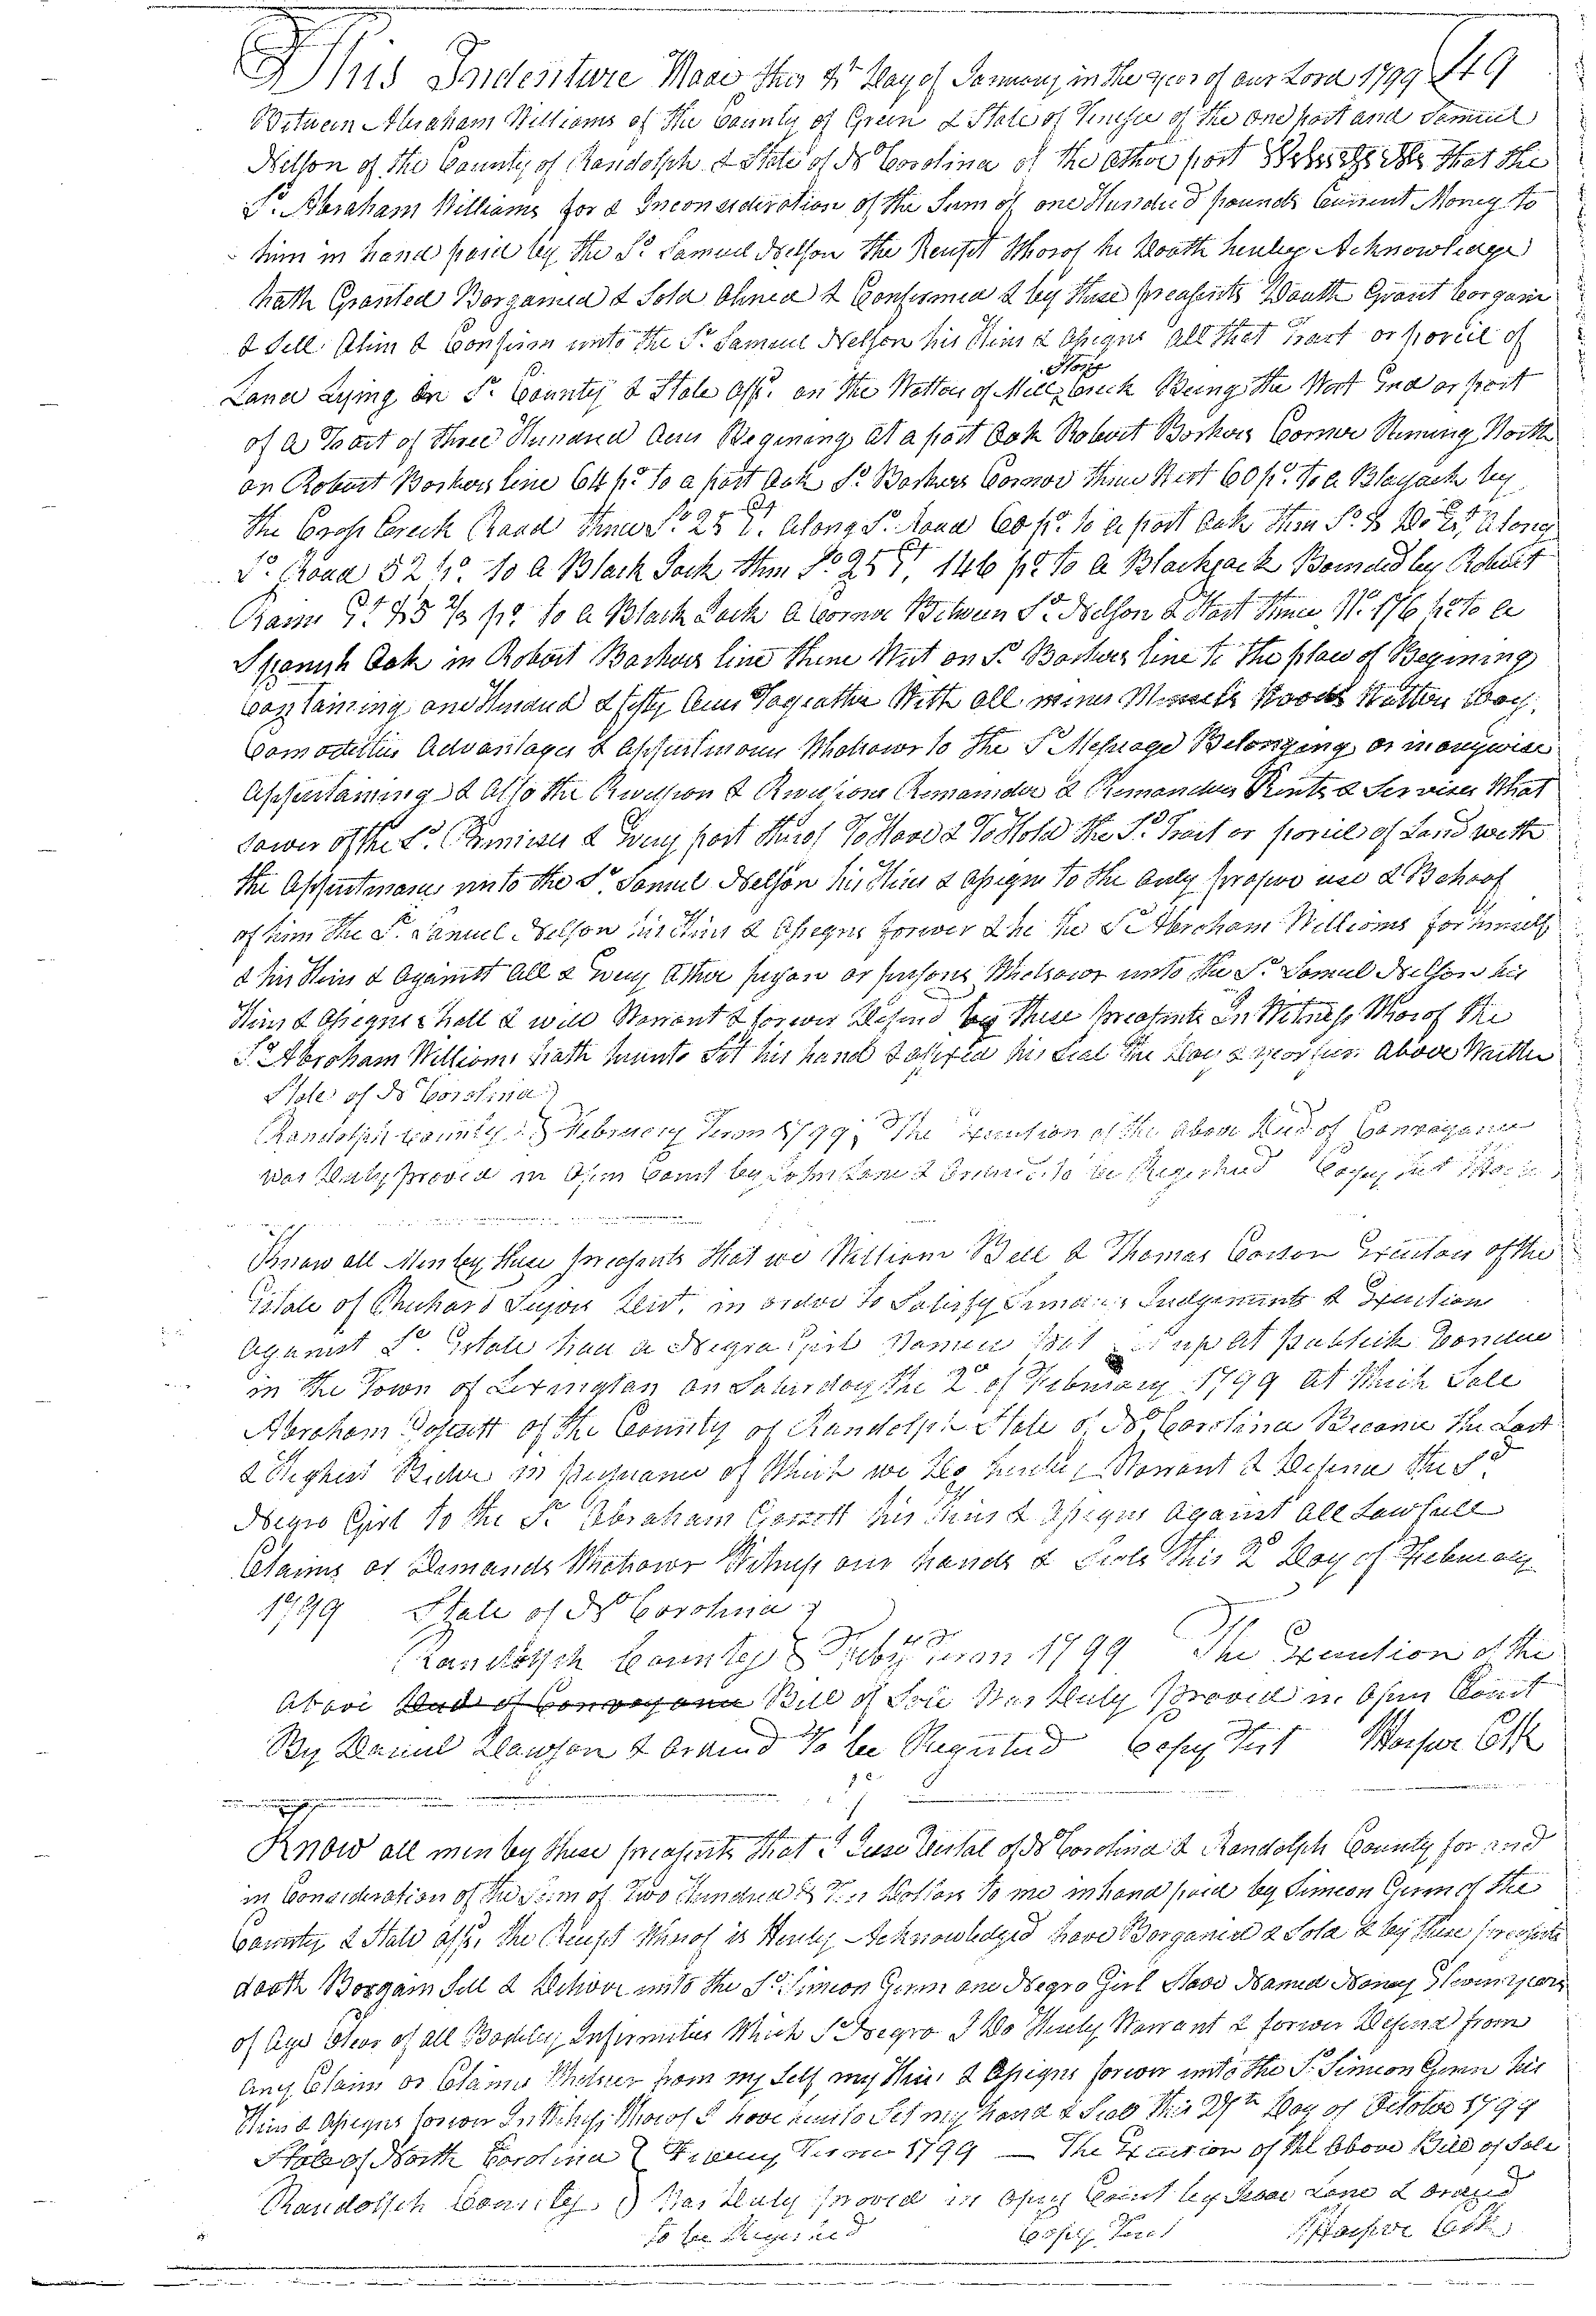 This Indenture Made this 4th Day of January in the year of our Lord 1799 149
Between Abraham Williams of the County of Green & State of Tinesee of the one part and Samuel
Nelson of the County of Randolph & State of No Corolina of the other part that the
Sd. Abraham Williams for & Inconsideration of the Sum of one Hundred pounds Current Money to
him in hand paid by the Sd Samuel Nelson the Receipt Whorof he Doath hereby Acknowledge
hath Granted Borgained & Sold Alined & Confirmed & by these preasents Doath Grant borgain
& Sell Alin & Confirm unto the Sd. Samuel Nelson his Heirs & Assigns all that Tract or porcil of
Land Lying In Sd. County & State Affd. on the Wattors of Mill Creek Being the West End or part
of a Tract of three Hundred Acres Begining at a post Oak Robert Borkers Cornor Runing North
on Robert Borkers line 64 po. to a post Oak Sd. Barkers Cornor thence West 60 po. to a Blayjack by
the Cross Creek Road thence So 25 Et. along Sd. Road 60 po. to a post Oak then So. & Et. along
Sd. Road 52 po. to a Black Jack then So 25 Et. 146 po. to a Blackjack Bounded by Robert
Et. 45 2/3 po. to a Black Jack a Cornor Between Sd. Nelson & Hart thence No. 176 po to a
Spanish Oak in Robert Barkers line thence Wist on Sd. Barkers line to the place of Begining
Containing one Hundred & fifty Acres Togeather With all mines Woods Wattors
Comodities Advantages & appurtinances Whatsowr to the Sd Messuage Belonging or in anywise
Appurtaining & also the Revirsion & Revirsions Remainder & Remainders Rents & Servises What
sower of the Sd. Premises & Every part thereof To Have & To Hold the Sd. Tract or porcil of Land with
the Appurtinances unto the Sd. Samul Nelson his Hiers & Assigns to the only propor use & Behoof
of him the Sd. Samuel Nelson his Heirs & Assigns forever & he the Sd Abraham Williams for himself
& his Heirs & Against all & every other person or persons Whatsowr unto the Sd. Samul Nelson his
Heirs & Assigns shall & will Warrant & forever Defend by these preasents In Witness Whorof the
Sd Abraham Williams hath hereunto Set his hand & affixed his Seal the Day & year first above Written
State of No Corolina
Randolph County February Term 1799, The Execution of the above Deed of Convayance
was Duly proved in Open Court by John Lane & Ordered to be Registered Copy Test
Know all Men by these preasents that we William Bell & Thomas Carson Executors of the
Estate of Richard Decd. in order to Satisfy Judgements & Execution
Against Sd. Estate had a Negro Girl Named Set up at publick Vendue
in the Town of Lexington on Saturday the 2d of February 1799 at Which Sale
Abraham of the County of Randolph State of No Corolina Became the Last
& Highest Bider in pursuance of Which we Do hereby Warrant & Defend the Sd
Negro Girl to the Sd. Abraham his Heirs & Assigns Against all Lawfull
Claims or Demands Whatsowr Witness our hands & Seals this 2d Day of February
1799 State of No Corolina
Randolph County Feby Term 1799 The Execution of the
above Deed of Convayance Bill of Sale Was Duly Proved in Open Court
By Daniel Dawson & Ordered to be Registered Copy Test Harper Clk
Know all men by these preasents that I of No Corolina & Randolph County for and
in Consideration of the Sum of Two Hundred & Ten Dollars to me in hand paid by Simeon Genn of the
County & State affd. the Receipt Whereof is Hereby Acknowledged have Borgained & Sold & by these preasents
doath Borgain Sell & Deliver unto the Sd. Simeon Genn one Negro Girl Slave Named Nancy years
of Age Clear of all Bodily Infirmities Which Sd Negro I Do Hereby Warrant & forever Defend from
any Claim or Claims Whatsoer from my Self my Heirs & Assigns forever unto the Sd. Simeon Genn his
Heirs & Assigns forever In Witness Whorof I have hereunto Set my hand & Seal this Day of October 1799
State of North Corolina Term 1799 — The Execution of the above Bill of Sale
Randolph County Was Duly proved in Open Court by Isaac Lane & Ordered
to be Registered Copy Test Harper Clk